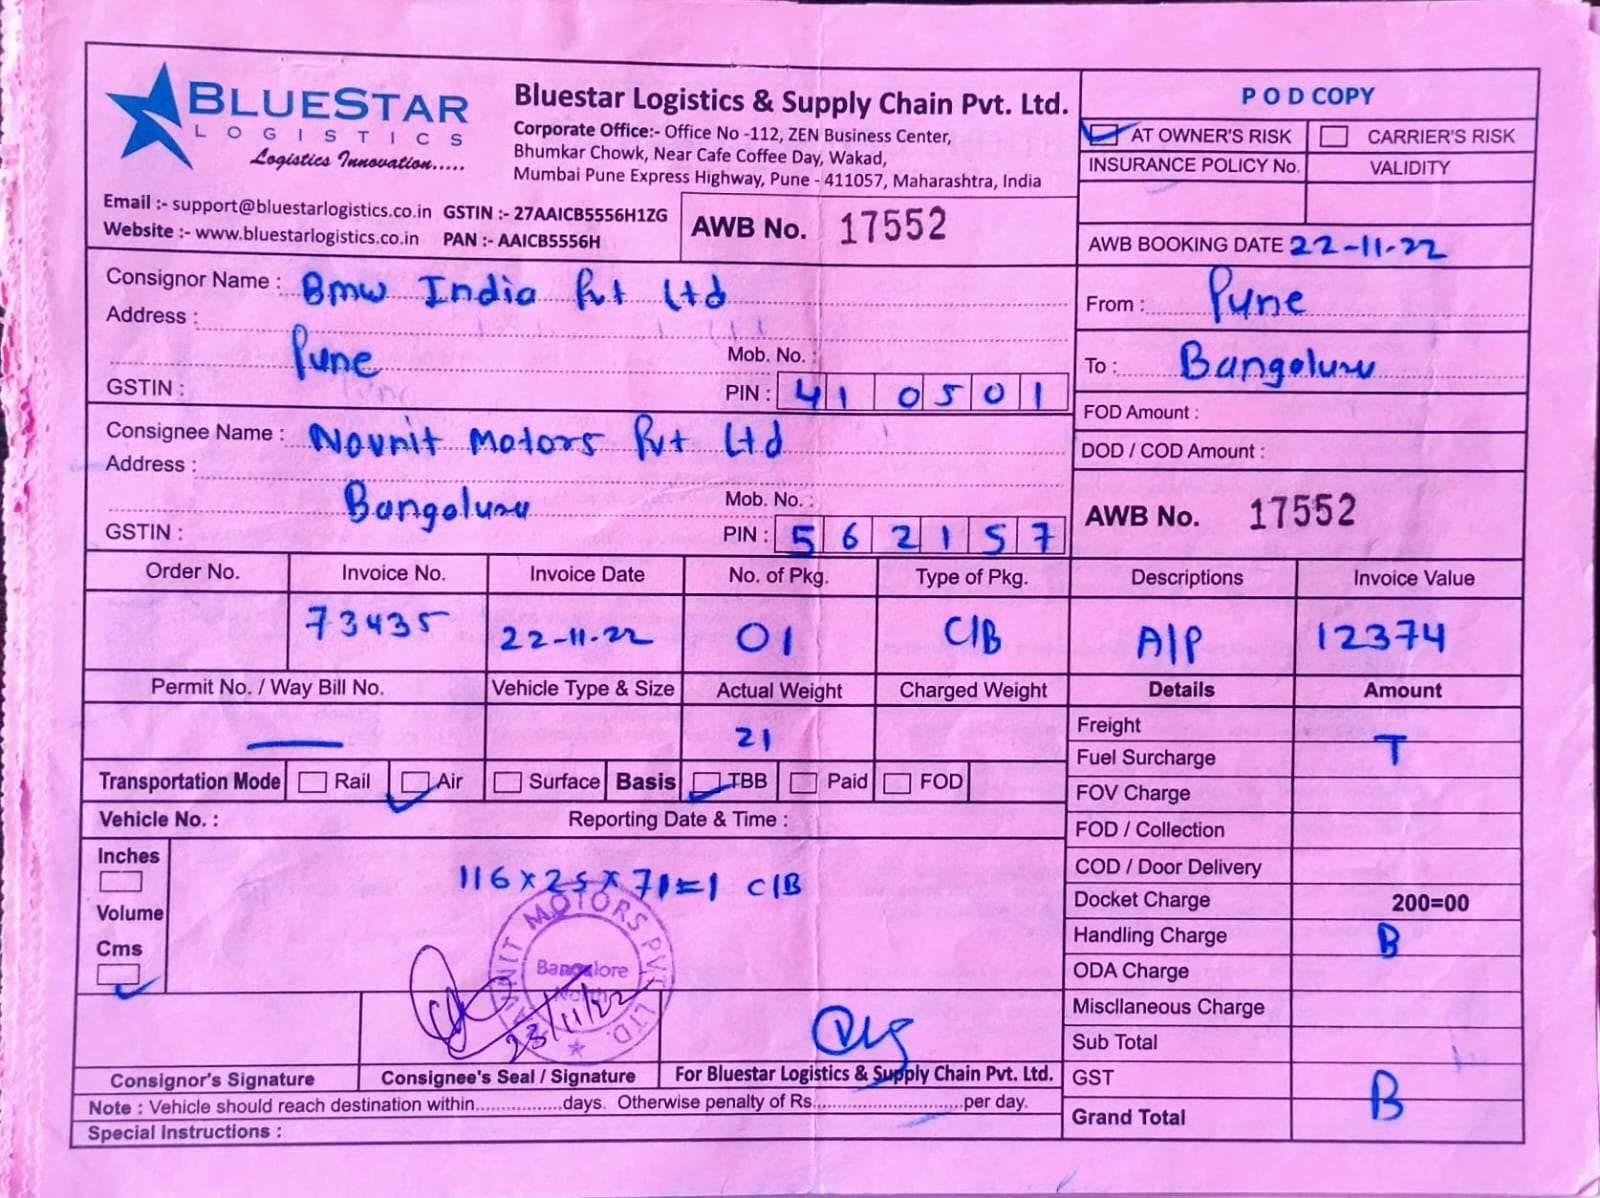 BLUESTAR
LOGISTICS
Logistics Innovation.....
Bluestar Logistics & Supply Chain Pvt. Ltd.
Corporate Office:- Office No -112, ZEN Business Center,
Bhumkar Chowk, Near Cafe Coffee Day, Wakad,
Mumbai Pune Express Highway, Pune - 411057, Maharashtra, India
Email :- support@bluestarlogistics.co.in GSTIN :- 27AAICB5556H1ZG
Website :- www.bluestarlogistics.co.in PAN :- AAICB5556H
AWB No. 17552
POD COPY
AT OWNER'S RISK CARRIER'S RISK
INSURANCE POLICY No. VALIDITY
AWB BOOKING DATE 22-11-22
Consignor Name : Bmw India Pvt Ltd
Address :
Pune Mob. No. :
GSTIN : PIN : 410501
From : Pune
To : Bangaluru
FOD Amount :
DOD / COD Amount :
Consignee Name : Navnit Motors Pvt Ltd
Address :
Bangaluru Mob. No. :
GSTIN : PIN : 562157
AWB No. 17552
Order No. Invoice No. Invoice Date No. of Pkg. Type of Pkg. Descriptions Invoice Value
73435 22-11-22 01 C/B A/P 12374
Permit No. / Way Bill No. Vehicle Type & Size Actual Weight Charged Weight Details Amount
21
Transportation Mode Rail Air Surface Basis TBB Paid FOD
Vehicle No. : Reporting Date & Time :
Inches
Volume
Cms
116x25x71=1 C/B
NAVNIT MOTORS PVT. LTD.
Bangalore
North
23/11/22
Freight
T
Fuel Surcharge
FOV Charge
FOD / Collection
COD / Door Delivery
Docket Charge 200=00
Handling Charge B
ODA Charge
Miscllaneous Charge
Sub Total
GST
B
Grand Total
Consignor's Signature Consignee's Seal / Signature For Bluestar Logistics & Supply Chain Pvt. Ltd.
Note : Vehicle should reach destination within.................days. Otherwise penalty of Rs..............................per day.
Special Instructions :